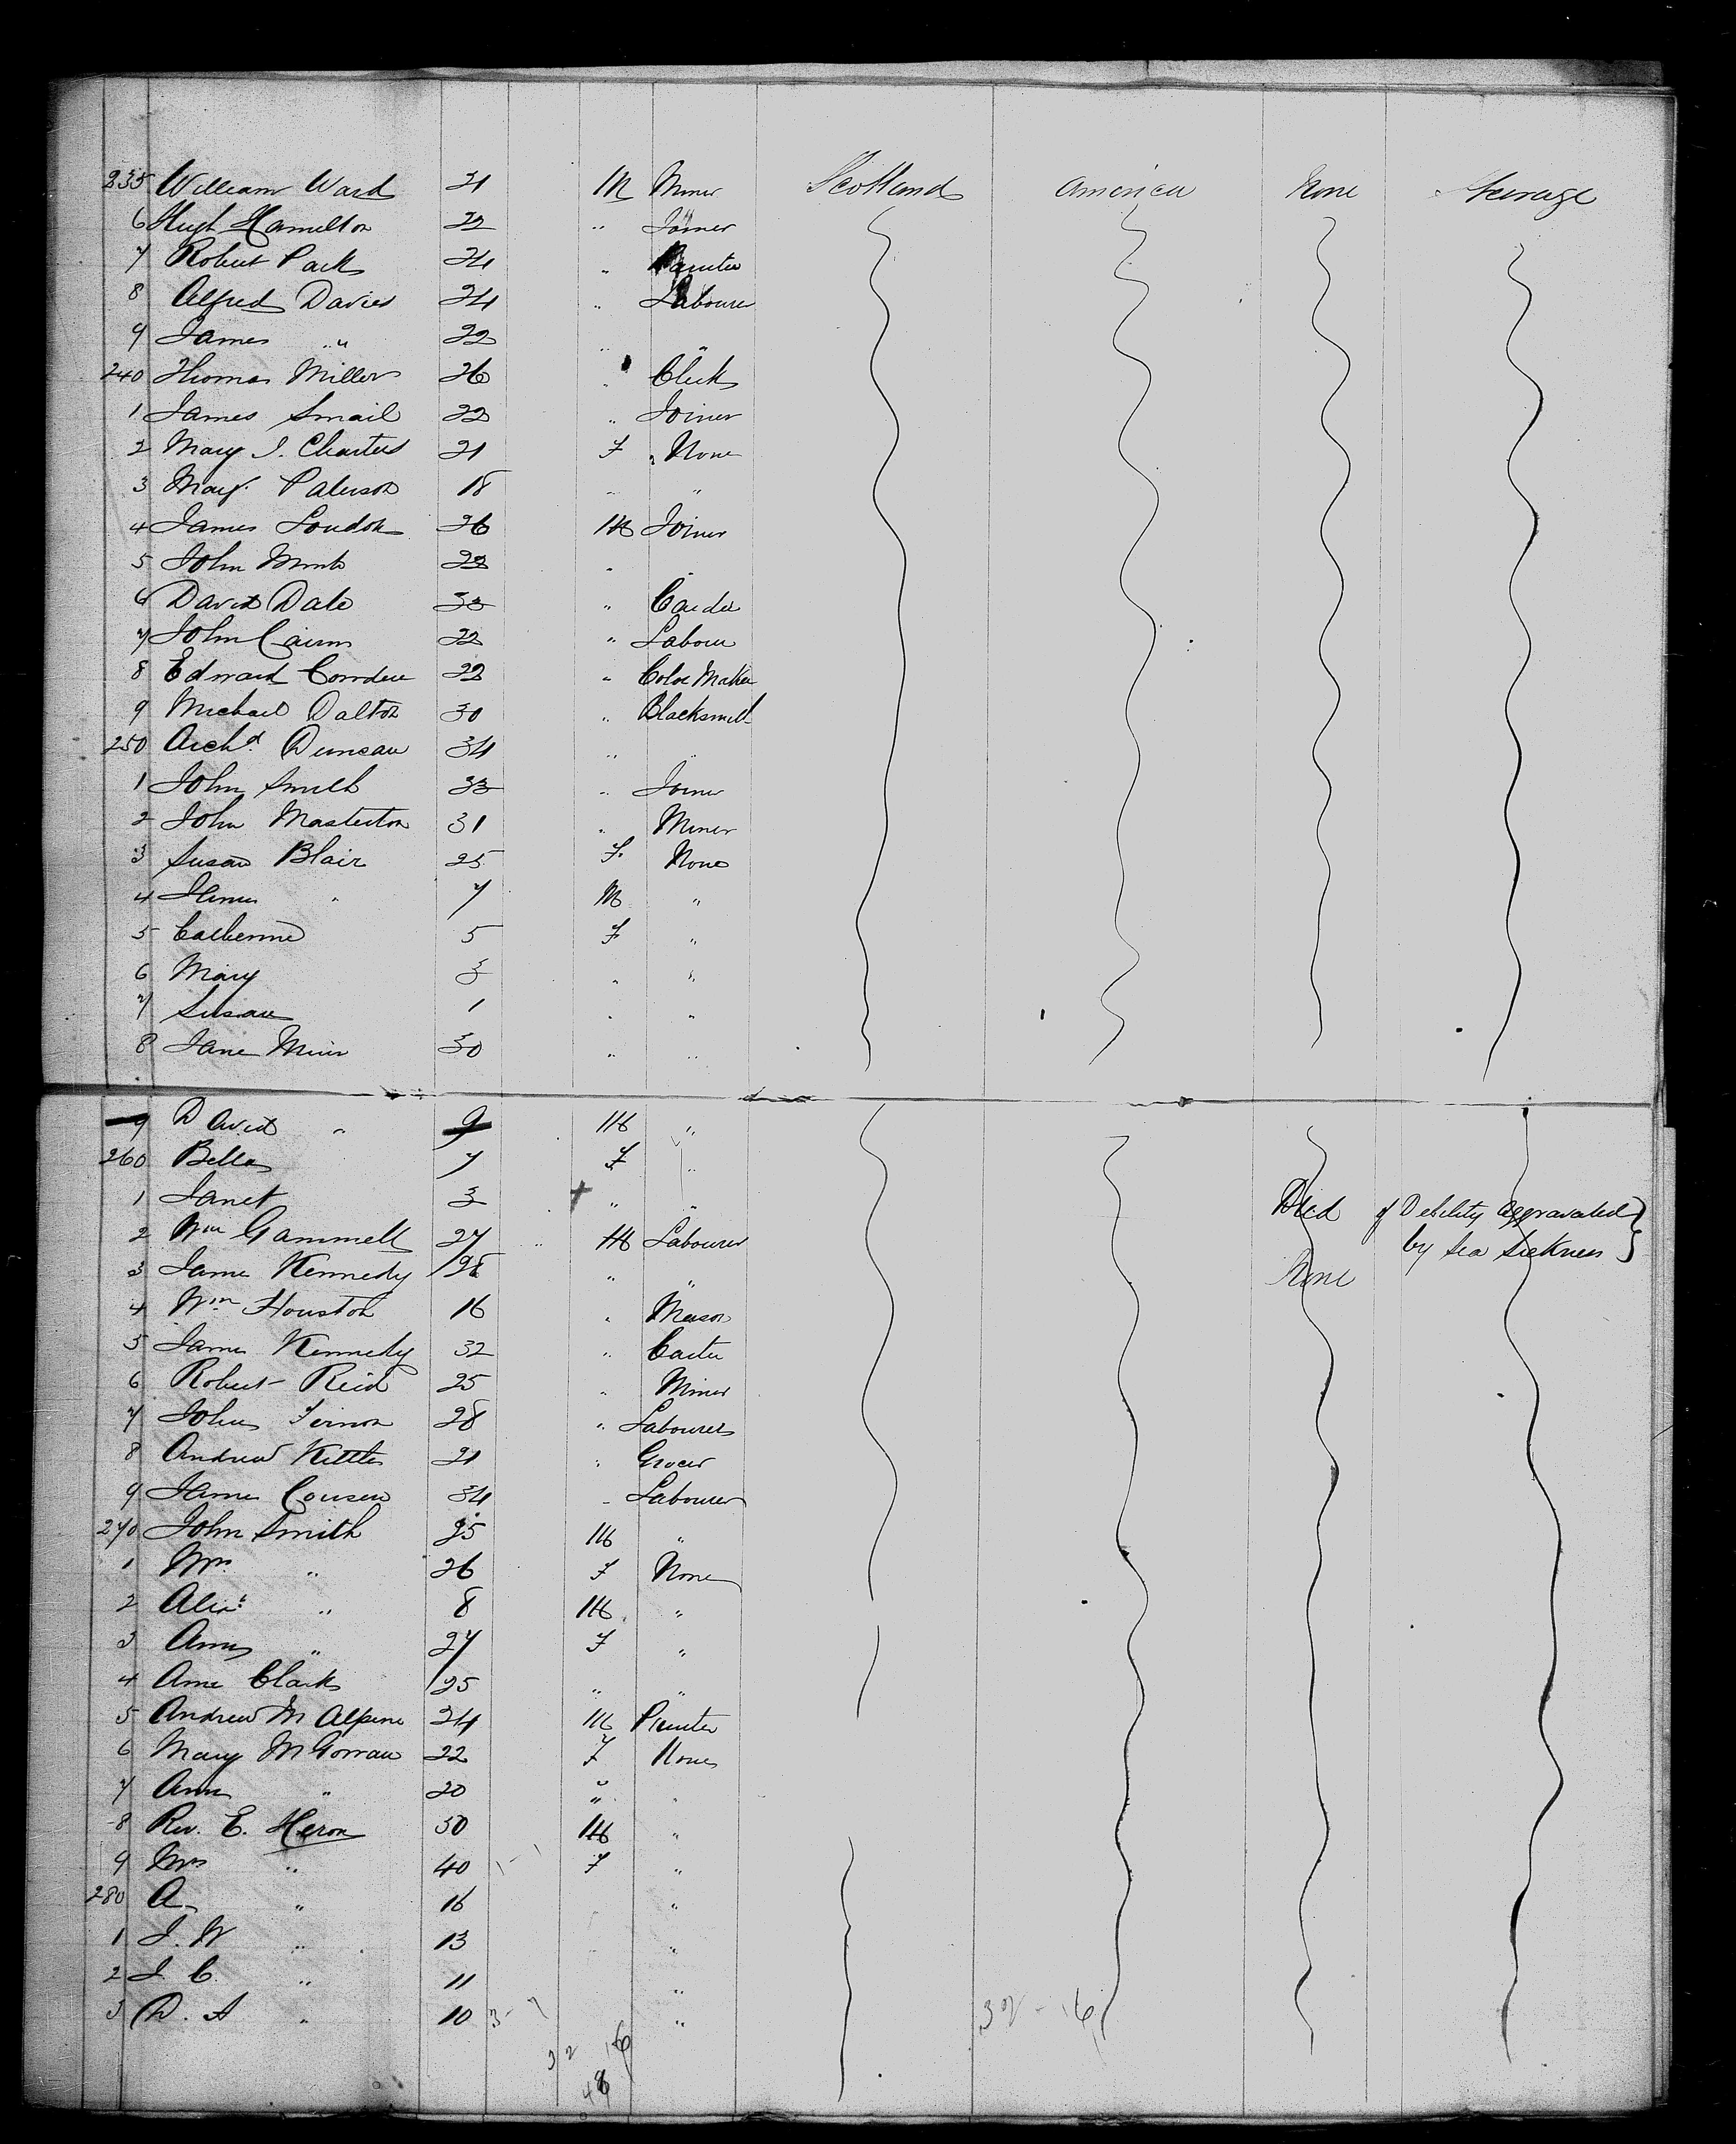 235 William Ward 21 M Miner Scotland America None Steerage
6 Hugh Hamilton 22 " Joiner
7 Robert Park 24 "
8 Alfred Davies 24 " Labourer
9 James " 22 " "
240 Thomas Miller 26 " Clerk
1 James Smail 22 " Joiner
2 Mary J. Charters 21 F " None
3 Mary Paterson 18 " "
4 James Loudon 26 M Joiner
5 John 22 " "
6 David Dale 33 " Carder
7 John Cairns 22 " Labour
8 Edward 22 " Color Maker
9 Michael Dalton 30 " Blacksmith
250 Archd Duncan 34 " "
1 John Smith 33 " Joiner
2 John Masterton 31 " Miner
3 Susan Blair 25 F. None
4 " 7 M "
5 Catherine 5 F "
6 Mary 3 " "
7 Susan 1 " "
8 Jane Muir 30 " "
9 David " 9 M "
260 Bella 7 F "
1 Janet 3 + " " Died of Debility aggravated
by Sea Sickness
2 Wm Gammell 27 M Labourer
3 James Kennedy 28 " " None
4 Wm Houston 16 " Mason
5 James Kennedy 32 " Carter
6 Robert Reid 25 " Miner
7 John 28 " Labourer
8 Andrew Kettle 21 " Grocer
9 James 34 " Labourer
270 John Smith 25 M "
1 Mrs " 26 F None
2 Alexr " 8 M "
3 Ann " 27 F "
4 Ann Clark 25 " "
5 Andrew McAlpine 24 M
6 Mary 22 F None
7 Ann " 20 " "
8 Rev. E. Heron 50 M "
9 Mrs " 40 F "
280 A " 16 "
1 J. W " 13 " "
2 J. C. " 11 "
3 D. A " 10 "
32 16
32 16
48